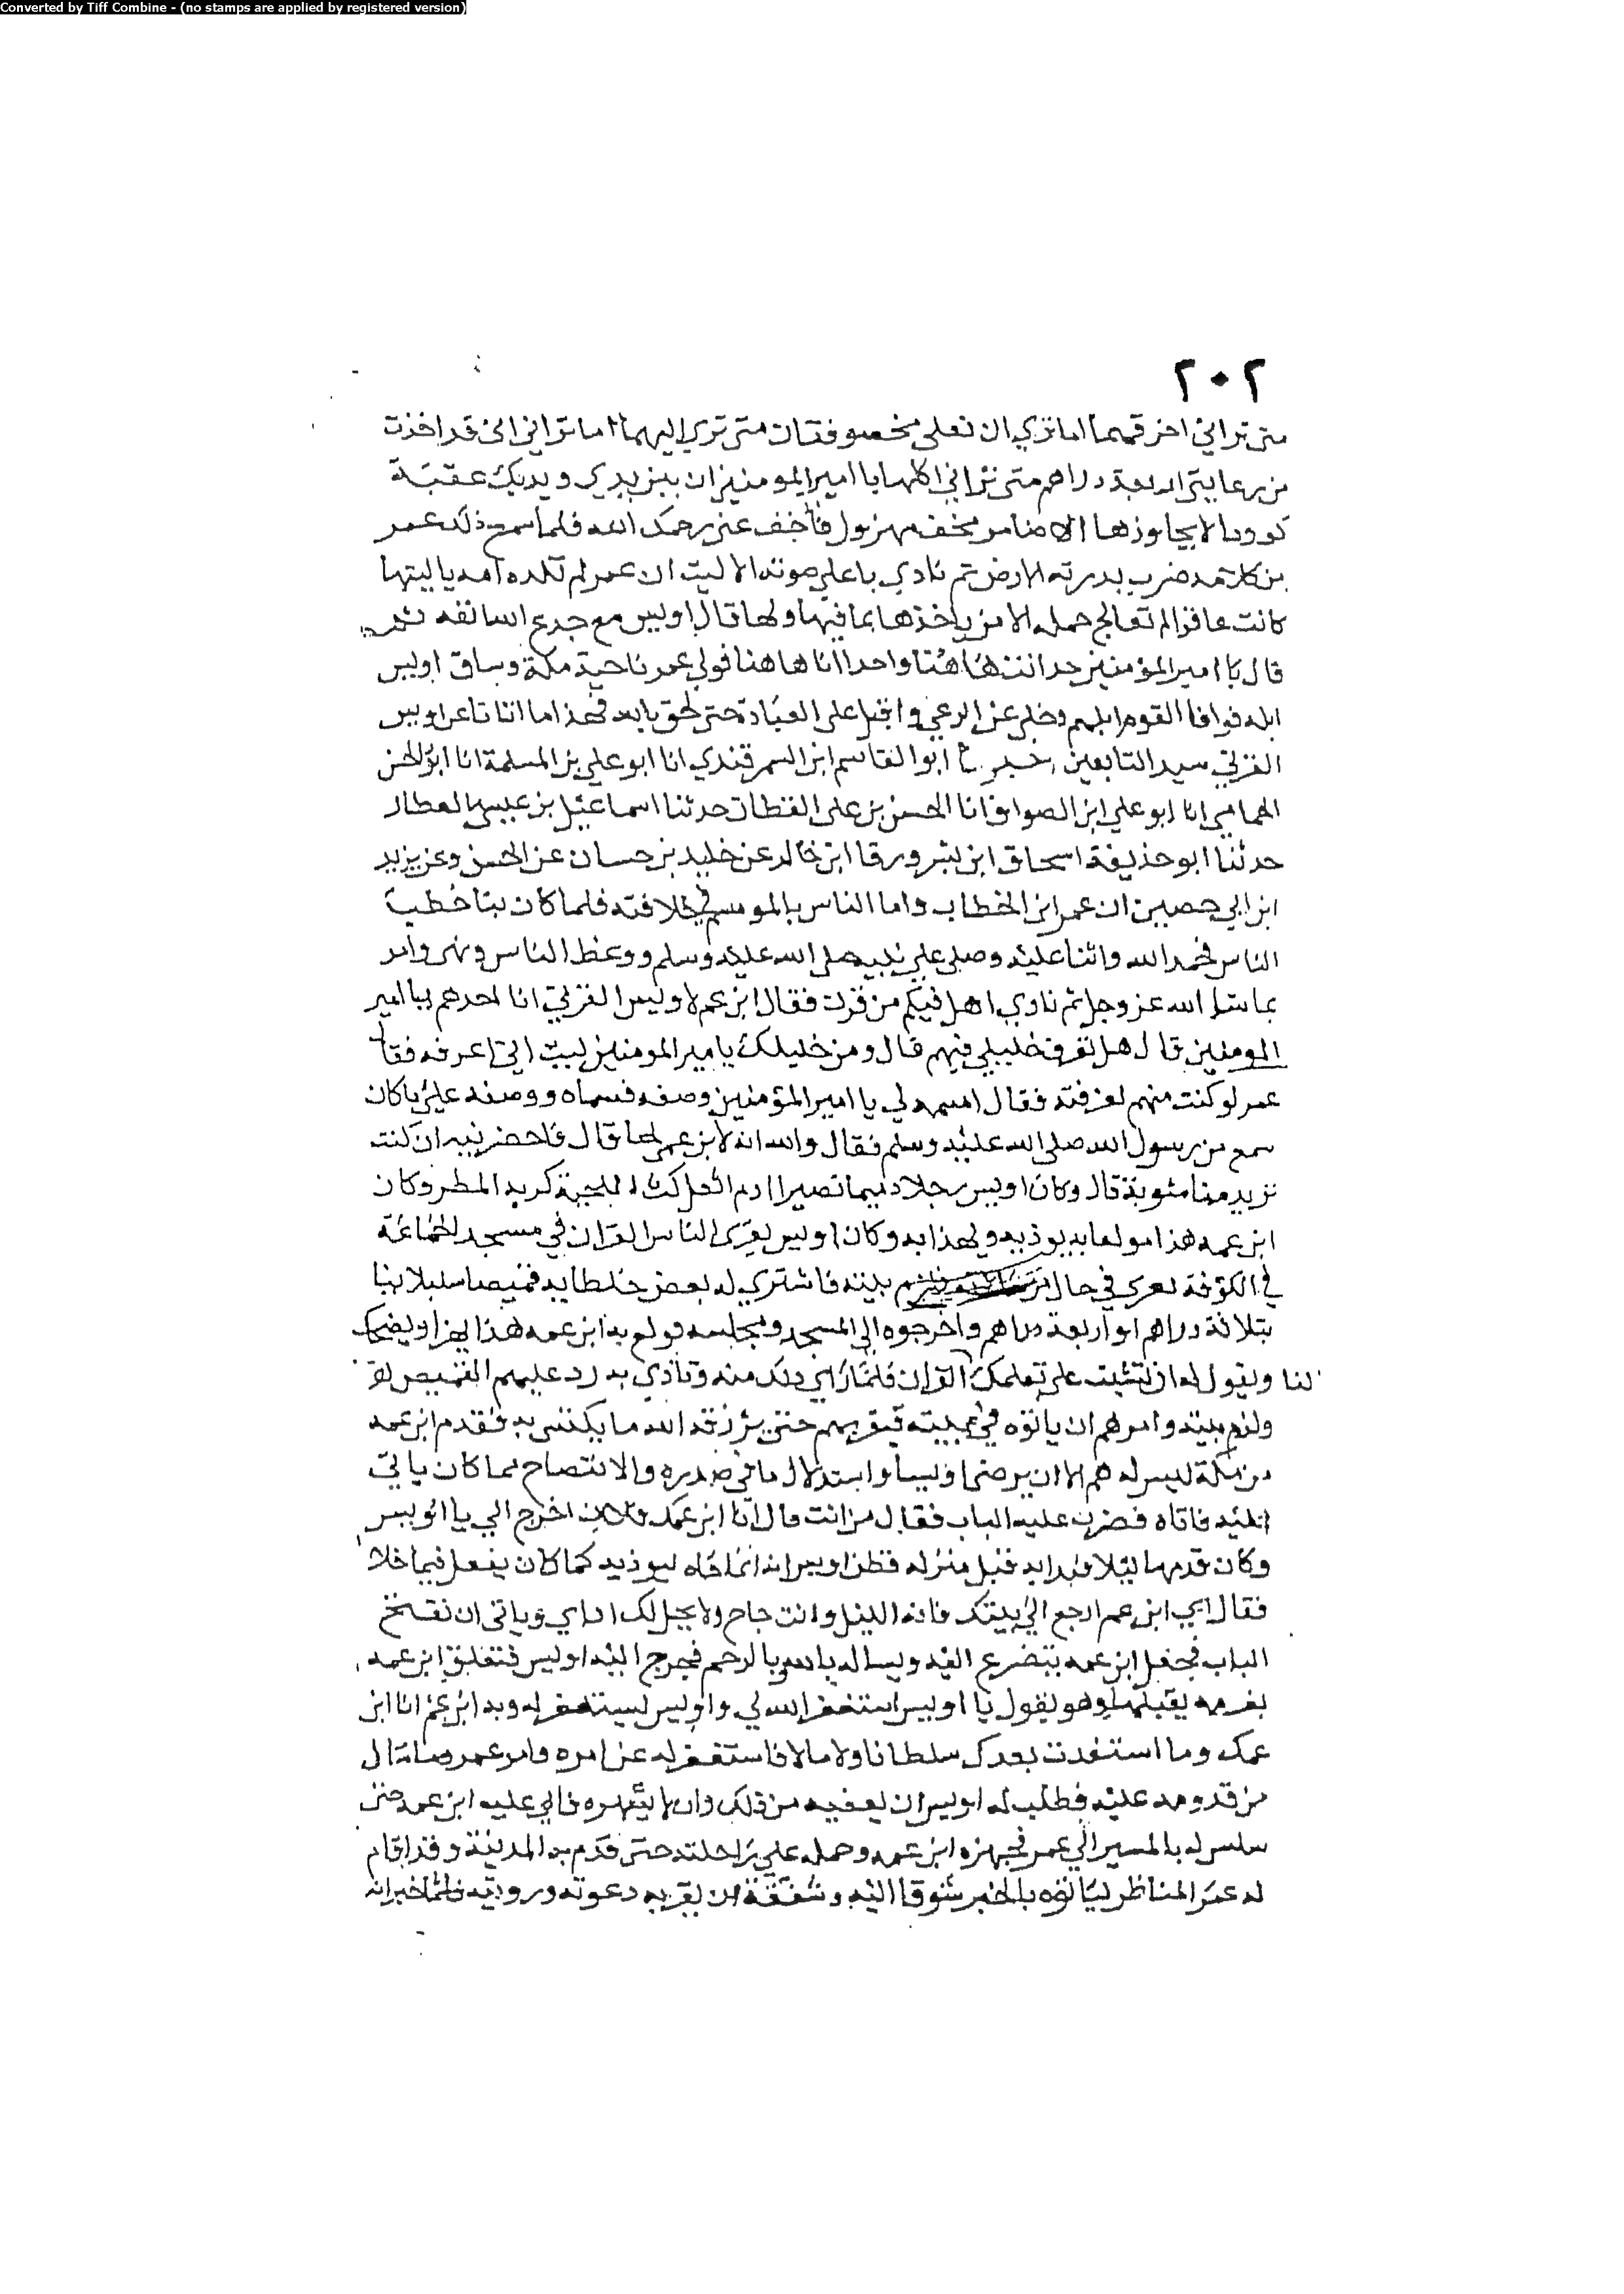 Converted by Tiff Combine - (no stamps are applied by registered version)
٢٠٢
متى تراني اخرقهما اما تري ان نعلي مخصوفتان متى تري ابليهما اما تراني اني قد اخذت
من رعايتي اربعة دراهم متى تراني اكلها يا امير المومنين ان بين يدي ويديك عقبة
كوودا لا يجاوزها الا ضامر مخف مهزول فاخف عني رحمك الله فلما سمع ذلك عمر
من كلامه ضرب بدرته الارض ثم نادي باعلي صوته الا ليت ان عمر لم تلده امه يا ليتها
كانت عاقرا لم تعالج حمله الا من ياخذها بما فيها ولها قال اويس مع جدع الله انفه ثم
قال يا امير المؤمنين خد انت هاهنا واخدا انا هاهنا فولي عمر ناحية مكة وساق اويس
ابله فوافا القوم ابلهم وخلى عن الرعي واقبل على العبادة حتى لحق بالله فهذا ما اتانا عن اويس
القرني سيد التابعين اخبرنا ابو القاسم ابن السمرقندي انا ابو علي بن المسلمة انا ابو الحسن
الحمامي انا ابو علي ابن الصواف انا الحسن بن على القطان حدثنا اسماعيل بن عيسى العطار
حدثنا ابو حذيفة اسحاق ابن بشر ورقا ابن خالد عن خليد بن حسان عن الحسن وعن يزيد
ابن ابي حصيين ان عمر ابن الخطاب واما الناس بالموسم في خلافته فلما كان بمنا خطب
الناس فحمد الله واثنا عليه وصلى على نبيه صلى الله عليه وسلم ووعظ الناس ونهى وامر
بما شا الله عز وجل ثم نادي اهل فيكم من قرن فقال ابن عم لاويس القرني انا احدهم يا امير
المومنين قال هل تعرف خليلي فيهم قال ومن خليلك يامير المومنين ليت اني اعرفه فقال
عمر لو كنت منهم لعرفته فقال اسمه لي يا امير المؤمنين وصفه فسماه ووصفه على ما كان
سمع من رسول الله صلى الله عليه وسلم فقال والله انه لابن عمي لحا قال فاحضرنيه ان كنت
تريد منا مثوبة قال وكان اويس رجلا دميما قصيرا ادم اشعل كث اللحية كريه المنظر وكان
ابن عمه هذا مولعا به يوذيه ويهذا به وكان اويس يقرى الناس القران في مسجد الجماعة
في الكوفة لعرى في حال بيته فاشتري له بعض خلطايه قميصا سنبلانيا
بثلاثة دراهم او اربعة دراهم واخرجوه الى المسجد ومجلسه فولع به ابن عمه هذا يهزا ويضحك
لنا ويقول لم ان لتثبت على تعلمك القران فلما راي ذلك منه وتاذي به رد عليهم القميص
ولزم بيته وامرهم ان ياتوه في بيته فيقريهم حتى يرزقه الله ما يكتسي به فقدم ابن عمه
من مكة ليس له هم الا ان يرضى اويسا واستدلال ما في صدره والانتصاح مما كان ياتي
اليه فاتاه فضرب عليه الباب فقال من انت قال انا ابن عمك فلان اخرج الي يا اويس
وكان قدمها ليلا فبدا به قبل منزله فظن اويس انه انما اتاه ليوذيه كما كان يفعل فيما خلا
فقال اي ابن عم ارجع الى بيتك فانه الليل وانت حاج ولا يحل لك اذاي وياتى ان نفتح
الباب فجعل ابن عمه يتضرع اليه ويساله بالله وبالرحم فخرج اليه اويس فتعلق ابن عمه
بقدمه يقبلها وهو يقول يا اويس استغفر الله لي واويس يستغفر له وبدا ابن عم انا ابن
عمك وما استفدت بعدك سلطانا ولا مالا فاستغفر له عن امره وامر عمر وما قال
من قدومه عليه فطلب له اويس ان يعفيه من ذلك وان لا يشهره فابي عليه ابن عمه حتى
سلس له بالمسير الى عمر فجهزه ابن عمه وحمله على راحلته حتى قدم به المدينة وقد اقام
له عمر المناظر لياتوه بالخبر شوقا اليه وشفقة ان يقر به دعوته ورويته فلما اخبر انه